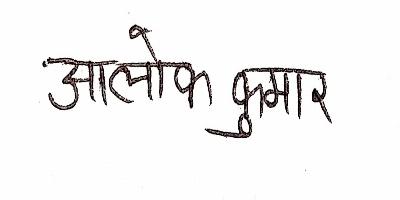 आलोक कुमार